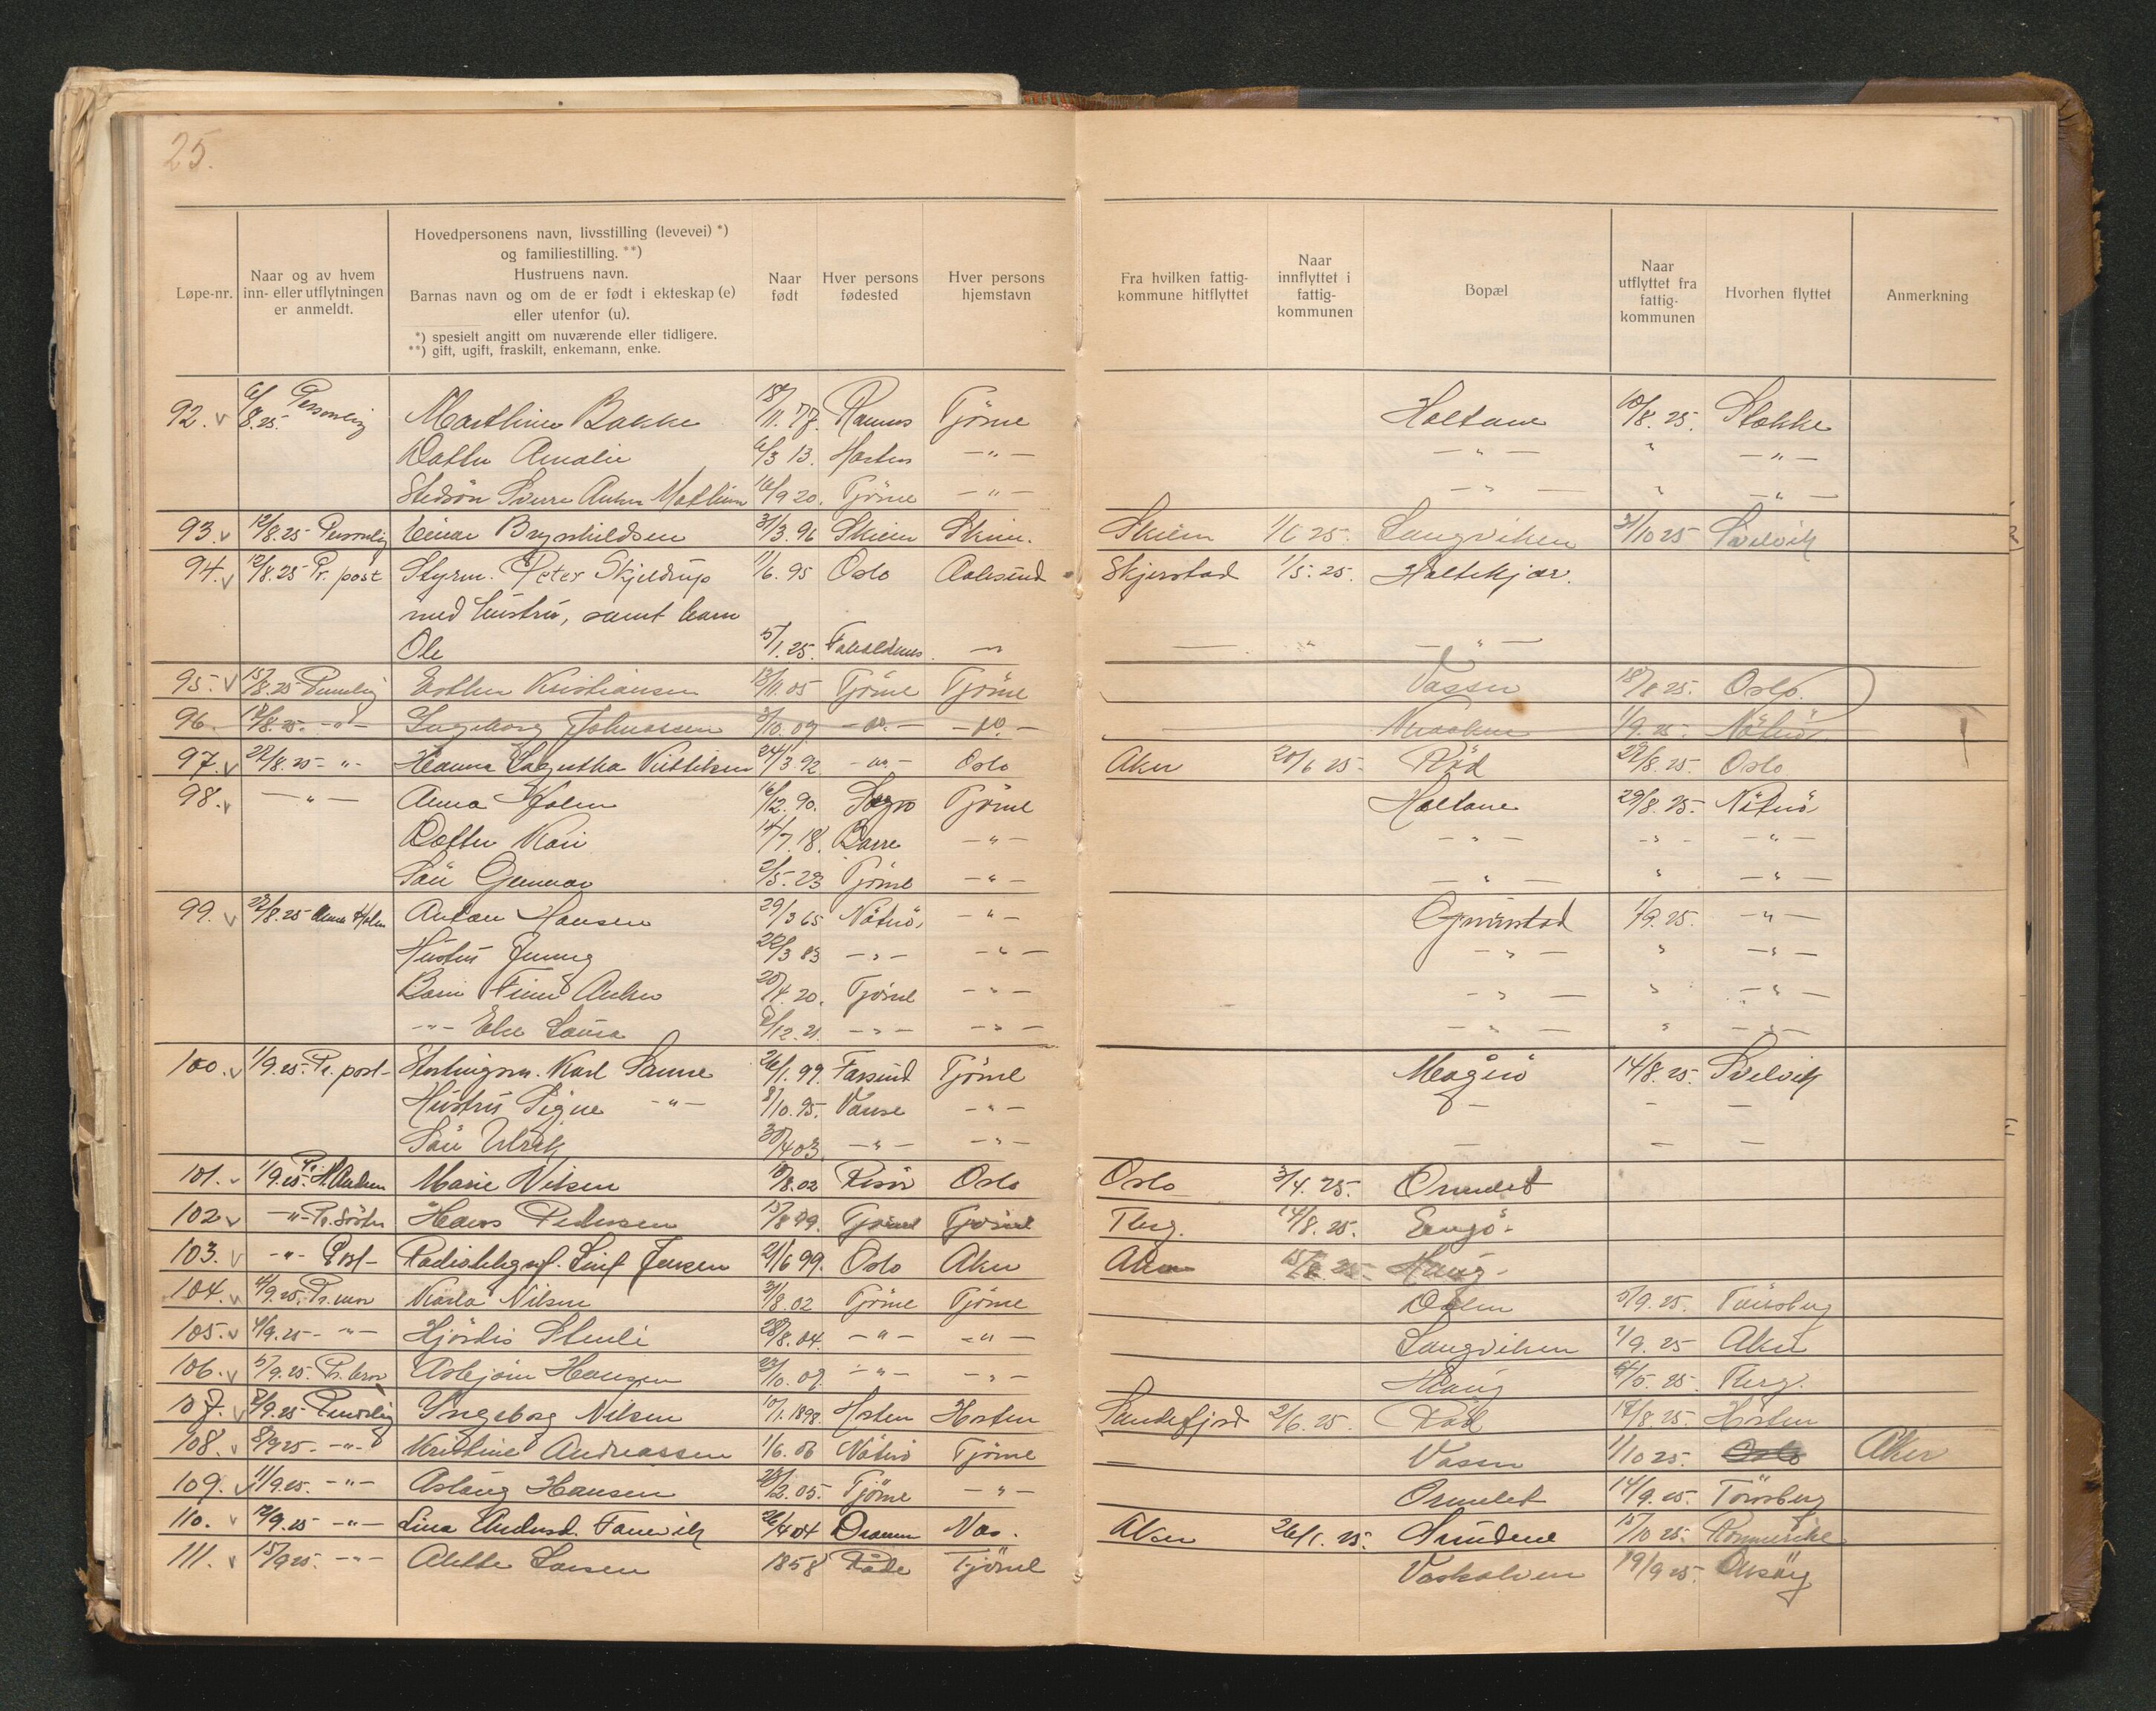 25.
Løpe-nr.
Naar og av hvem
inn- eller utflytningen
er anmeldt.
Hovedpersonens navn, livsstilling (levevei) *)
og familiestilling. **)
Hustruens navn.
Barnas navn og om de er født i ekteskap (e)
eller utenfor (u).
*) spesielt angitt om nuværende eller tidligere.
**) gift, ugift, fraskilt, enkemann, enke.
Naar
født
Hver persons
fødested
Hver persons
hjemstavn
Fra hvilken fattig-
kommune hitflyttet
Naar
innflyttet i
fattig-
kommunen
Bopæl
Naar
utflyttet fra
fattig-
kommunen
Hvorhen flyttet
Anmerkning
92. v 6/8.25. Personlig Bakke 18/11.77. Ramnes Tjöme Holtane 10/8.25. Stokke
Datter Amalie 6/3 13. Horten -"- -"- " -"-
Stedsön Sverre 16/9 20. Tjöme -"- -"- " -"-
93. v 12/8.25 Personlig Einar Brynhildsen 31/3.96 Skien Skien. Skien 1/6 25. Langviken 31/10 25 Svelvik
94. v 12/8.25 Pr. post Styrm. Peter Skjeldrup 1/6.95 Oslo Aalesund Skjerstad 1/5.25. Holtekjær.
med hustru, samt barn
Ole 5/1.25. -"- - " -"-
95. v 15/8.25 Personlig Esther Kristiansen 13/11.05 Tjöme Tjöme Vassen 18/8 25. Oslo.
96. 17/8.25. -"- Ingeborg Johnassen 3/10.07 -"- -"- 1/9.25. Nöterö.
97. v 22/8.25 -"- Hanna 24/3.92 -"- Oslo Aker 20/6 25. Röd 22/8.25. Oslo
98. v -"- Anna Holm 6/12.90. Tjöme Holtane 29/8.25. Nöterö
Datter Kari 14/7.18. Borre -"- -"- -"- -"-
Sön Gunnar 2/5.23 Tjöme -"- -"- " -"-
99. v 22/8.25 Anna Holm Anton Hansen 29/3 65 Nöterö, -"- Grimestad 1/9.25. -"-
Hustru Jenny 22/3 83 -"- -"- -"- " -"-
Barn Finn 20/4.20. Tjöme -"- -"- " -"-
-"- Else Laura /12.21. -"- -"- -"- " -"-
100. v 1/9.25. Pr. post Stortingsm. Karl Sanne 26/1.99. Farsund Tjöme Magerö 14/8.25. Svelvik
Hustru Signe -"- 8/10.95. Vanse -"- - - -
Sön Ulrik 30/4 03. -"- -"- - - -
101. v 1/9.25. Marie Nilsen 10/8.02 Risör Oslo Oslo 3/4.25. Ormelet
102 v -"- Hans Pedersen 15/8 99. Tjöme Tjöme Tbrg. 14/8.25. Engö
103. v -"- Post Radiotelegraf. Leif Jensen 21/6 99. Oslo Aker Aker 15/8.25. Haug
104. v 4/9.25. Pr. mor Karla Nilsen 31/8.02 Tjöme Tjöme Dalen 5/9.25. Tönsberg
105. v 4/9.25 -"- Hjördis 28/8.04. -"- -"- Langviken 7/9.25 Aker
106. v 5/9.25. Pr. bror Asbjörn Hansen 23/10.07. -"- -"- Haug 4/5.25. Tbrg.
107. v 8/9.25 Personlig Ingeborg Nilsen 10/1.1898. Horten Horten Sandefjord 2/6.25. Röd 17/8.25. Horten
108. v 8/9 25. -"- Kristine Andreassen 1/6.06 Nöterö Tjöme Vassen 1/10 25. Oslo Aker
109. v 11/9.25. -"- Aslaug Hansen 28/12.05. Tjöme -"- Ormelet 14/9.25. Tönsberg
110. v 12/9.25 -"- Lina 26/4 04 Dramm. Nes. Aker 26/1.25. Sundene 15/10 25. Romerike
111. v 15/9 25. -"- Alette Larsen 1858 Råde Tjöme Vaskalven 19/9 25.